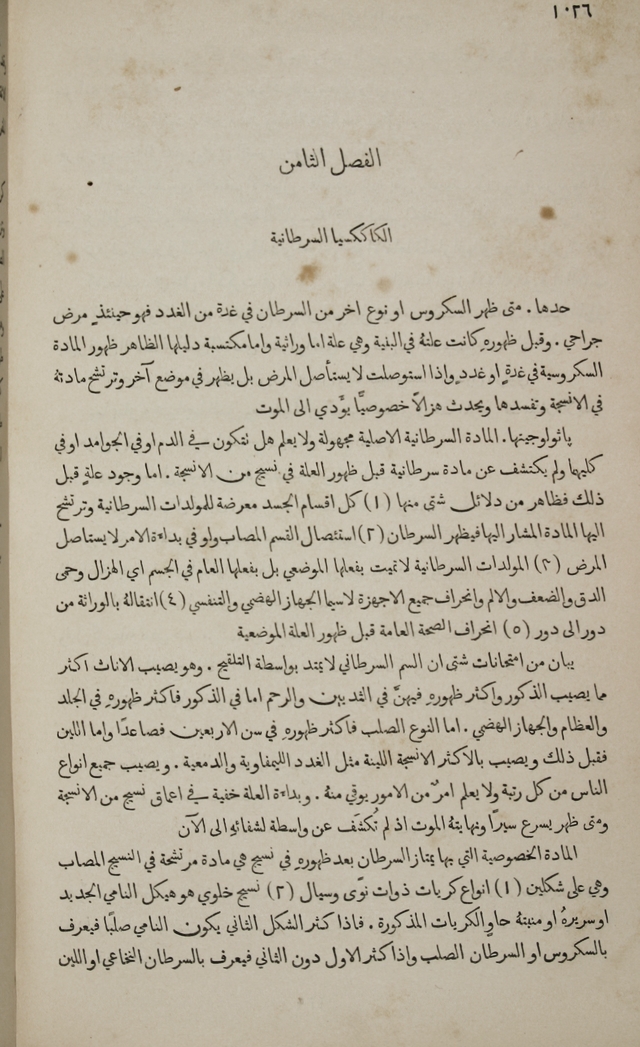 ١٠٢٦
الفصل الثامن
الكاككسيا السرطانية
حدها . متى ظهر السكروس او نوع اخر من السرطان في غدة من الغدد فهو حينئذٍ مرض
جراحي . وقبل ظهورهِ كانت علتهُ في البنية وهي علة اما وراثية واما مكتسبة دليلها الظاهر ظهور المادة
السكروسية في غدةٍ او غددٍ واذا استوصلت لا يستأصل المرض بل يظهر في موضع آخر وترتشح مادتهُ
في الانسجة وتفسدها ويحدث هزالاً خصوصيًّا يؤَدي الى الموت
باثولوجيتها . المادة السرطانية الاصلية مجهولة ولا يعلم هل تتكون في الدم او في الجوامد او في
كليهما ولم يكتشف عن مادة سرطانية قبل ظهور العلة في نسيج من الانسجة . اما وجود علةٍ قبل
ذلك فظاهر من دلائل شتى منها (١) كل اقسام الجسد معرضة للمولدات السرطانية وترتشح
اليها المادة المشار اليها فيظهر السرطان (٢) استئصال القسم المصاب ولو في بداءة الامر لا يستاصل
المرض (٣) المولدات السرطانية لا تميت بفعلها الموضعي بل بفعلها العام في الجسم اي الهزال وحمى
الدق والضعف والالم وانحراف جميع الاجهزة لاسيما الجهاز الهضمي والتنفسي (٤) انتقالهُ بالوراثة من
دور الى دور (٥) انحراف الصحة العامة قبل ظهور العلة الموضعية
يبان من امتحانات شتى ان السم السرطاني لا يمتد بواسطة التلقيح . وهو يصيب الاناث اكثر
مما يصيب الذكور واكثر ظهورهِ فيهنَّ في الثديين والرحم اما في الذكور فاكثر ظهورهِ في الجلد
والعظام والجهاز الهضمي . اما النوع الصلب فاكثر ظهورهِ في سن الاربعين فصاعدًا واما اللين
فقبل ذلك ويصيب بالاكثر الانسجة اللينة مثل الغدد الليمفاوية والدمعية . ويصيب جميع انواع
الناس من كل رتبة ولا يعلم امرٌ من الامور يوقي منهُ . وبداءة العلة خفية في اعماق نسيج من الانسجة
ومتى ظهر يسرع سيرًا ونهايتهُ الموت اذ لم تُكشَف عن واسطة لشفائهِ الى الآن
المادة الخصوصية التي بها يمتاز السرطان بعد ظهورهِ في نسيج هي مادة مرتشحة في النسيج المصاب
وهي على شكلين (١) انواع كريات ذوات نوًى وسيال (٢) نسيج خلوي هو هيكل النامي الجديد
او سريرهُ او منبتهُ حاوٍ الكريات المذكورة . فاذا كثر الشكل الثاني يكون النامي صلبًا فيعرف
بالسكروس او السرطان الصلب واذا كثر الاول دون الثاني فيعرف بالسرطان النخاعي او اللين